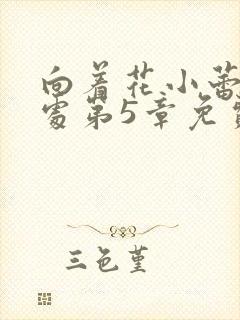 向着花小蕾
處第5章免費
三色堇